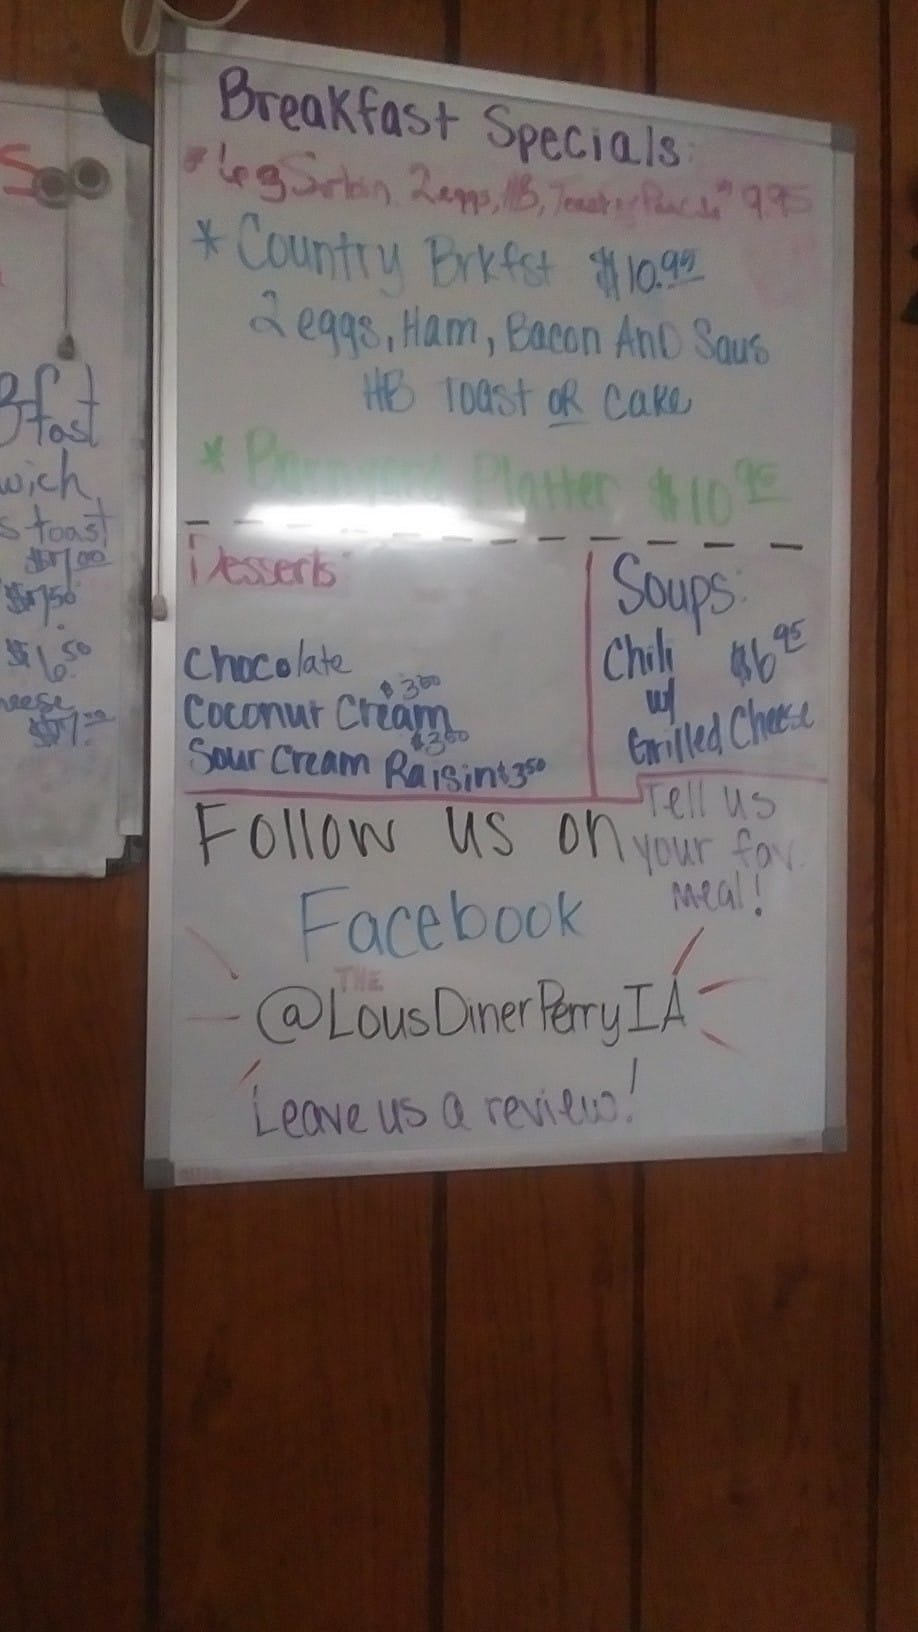 Breakfast Specials:
* 6oz Sirloin, 2eggs, HB, Toast or Pancake * 9.95
* Country Brkfst $10.95
2 eggs, Ham, Bacon AND Saus
HB Toast OR Cake
* Barnyard Platter $10.95
Desserts
Chocolate $3.50
Coconut Cream $3.50
Sour Cream Raisin $3.50
Soups:
Chili $6.95
w/
Grilled Cheese
Follow us on
Facebook
THE
@LousDinerPerryIA
Leave us a review!
Tell us
your fav.
meal!
Bfast
wich
toast
$7.00
$7.50
$6.50